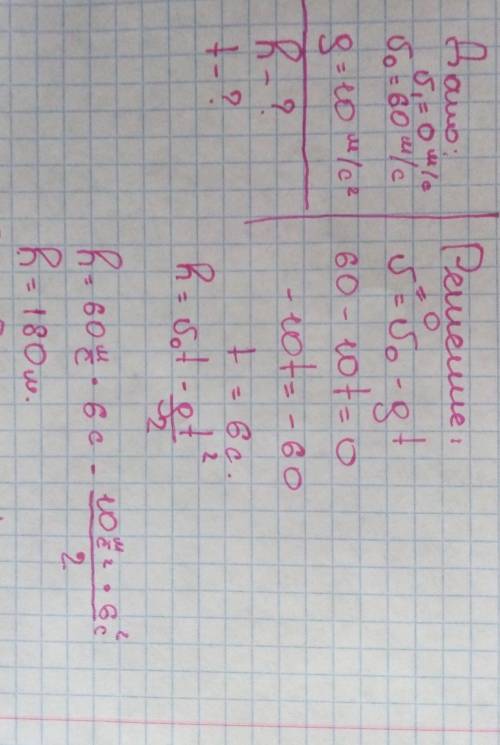 Дано:
υ₁ = 0 м/с
υ₀ = 60 м/с
g = 10 м/с²
h - ?
t - ?
Решение:
= 0
υ = υ₀ - gt
60 - 10t = 0
- 10t = - 60
t = 6с.
h = υ₀t - gt²/2
h = 60 м/с · 6с - 10 м/с² · 6с²/2
h = 180м.